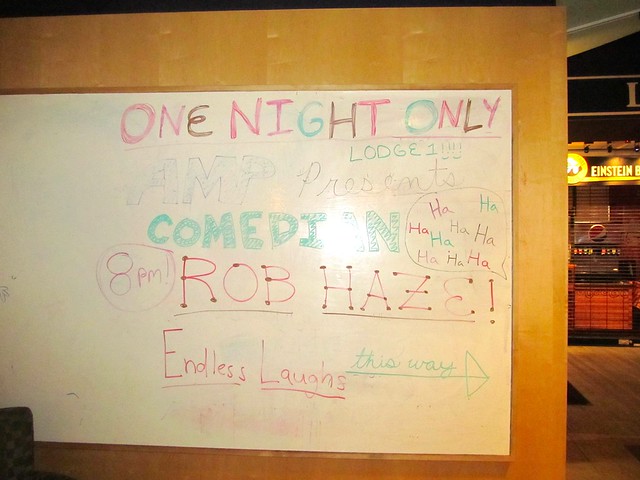 ONE NIGHT ONLY
LODGE 1!!!
AMP Presents
COMEDIAN
Ha Ha
Ha Ha Ha
Ha
Ha Ha Ha
8pm! ROB HAZE!
Endless Laughs
this way
EINSTEIN B
L